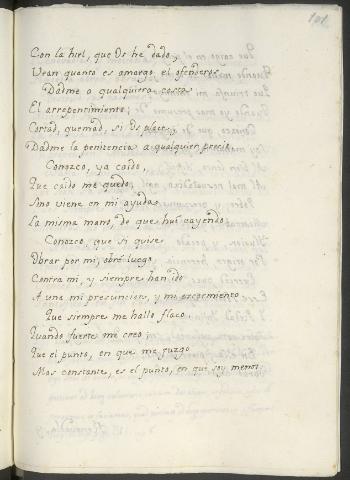 101
Con la hiel, que Os he dado,
Vean quanto es amargo el ofenderos
Dadme a qualquiera costa
El arrepentimiento;
Cortad, quemad, si Os place,
Dadme la penitencia a qualquier precio.
Conozco, ya caido,
Que caido me quedo,
Sino viene en mi ayuda
La misma mano, de que huì cayendo:
Conozco, que si quise
Obrar por mi, obré luego
Contra mi, y siempre han ido
A una mi presuncion, y mi escarmiento
Que siempre me hallo flaco,
Quando fuerte me creo;
Que el punto, en que me juzgo
Mas constante, es el punto, en que soy menos.